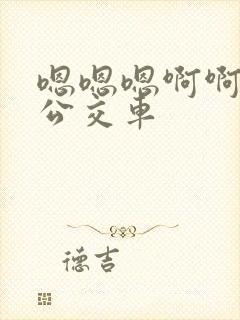 嗯嗯嗯啊啊
公交车
德吉